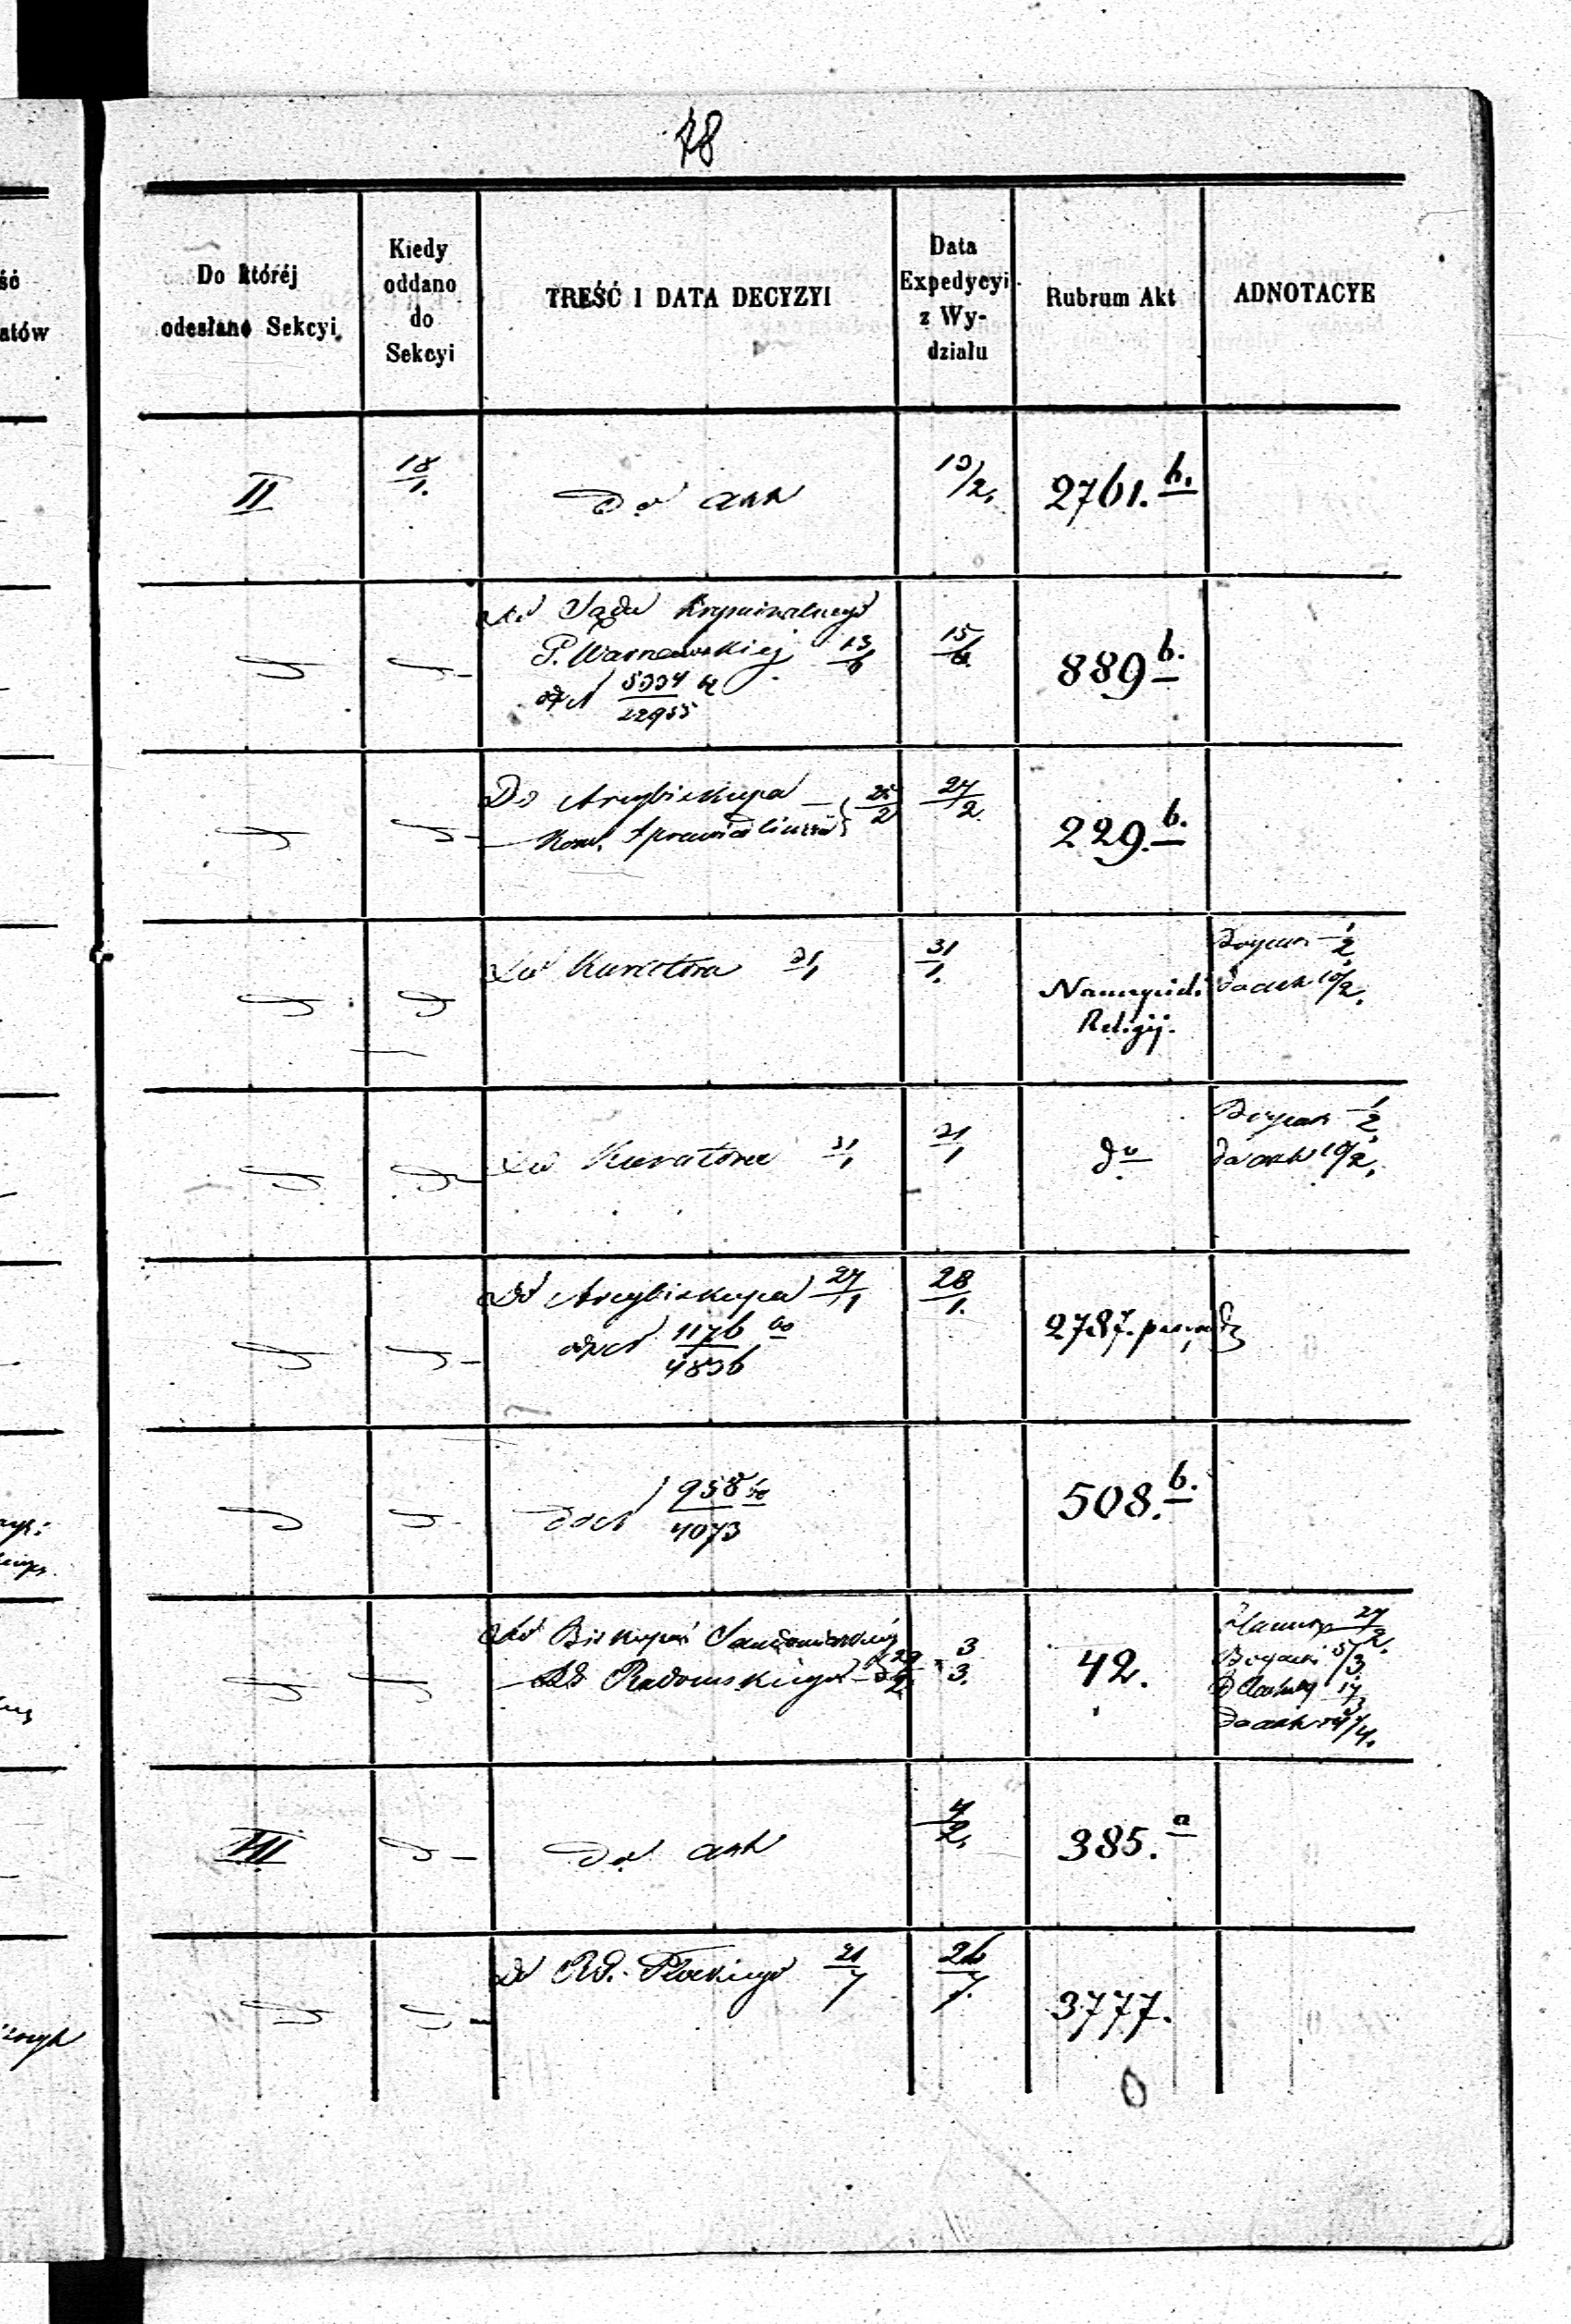 78
Do któréj
odesłano Sekcyi
Kiedy
oddano
do
Sekcyi
TREŚĆ I DATA DECYZYI
Data
Expedycyi
z Wy-
działu
Rubrum Akt
ADNOTACYE
II
18/1.
Do akt
10/2.
2761. b.
Do Sądu Kryminalnego
P. Warszawskiej 13/6
22955
15/6
889 b.
Do Arcybiskupa
Kom. Sprawiedliwości 25/2
27/2.
229. b.
Do Kuratora 31/1
31/1.
Religij.
1/2.
do akt 10/2.
Do Kuratora 31/1
31/1
do
1/2.
do akt 10/2.
Do Arcybiskupa 27/1
1176/4836
28/1.
2787.
do N 958/4073
508. b.
Do Biskupa Sandomierskiej
Radomskiego
3/3.
42.
27/2.
5/3.
17/3
do akt
III
Do akt
4/2.
385. a
Do Rd. Płockiego 21/7
26/7.
3777.